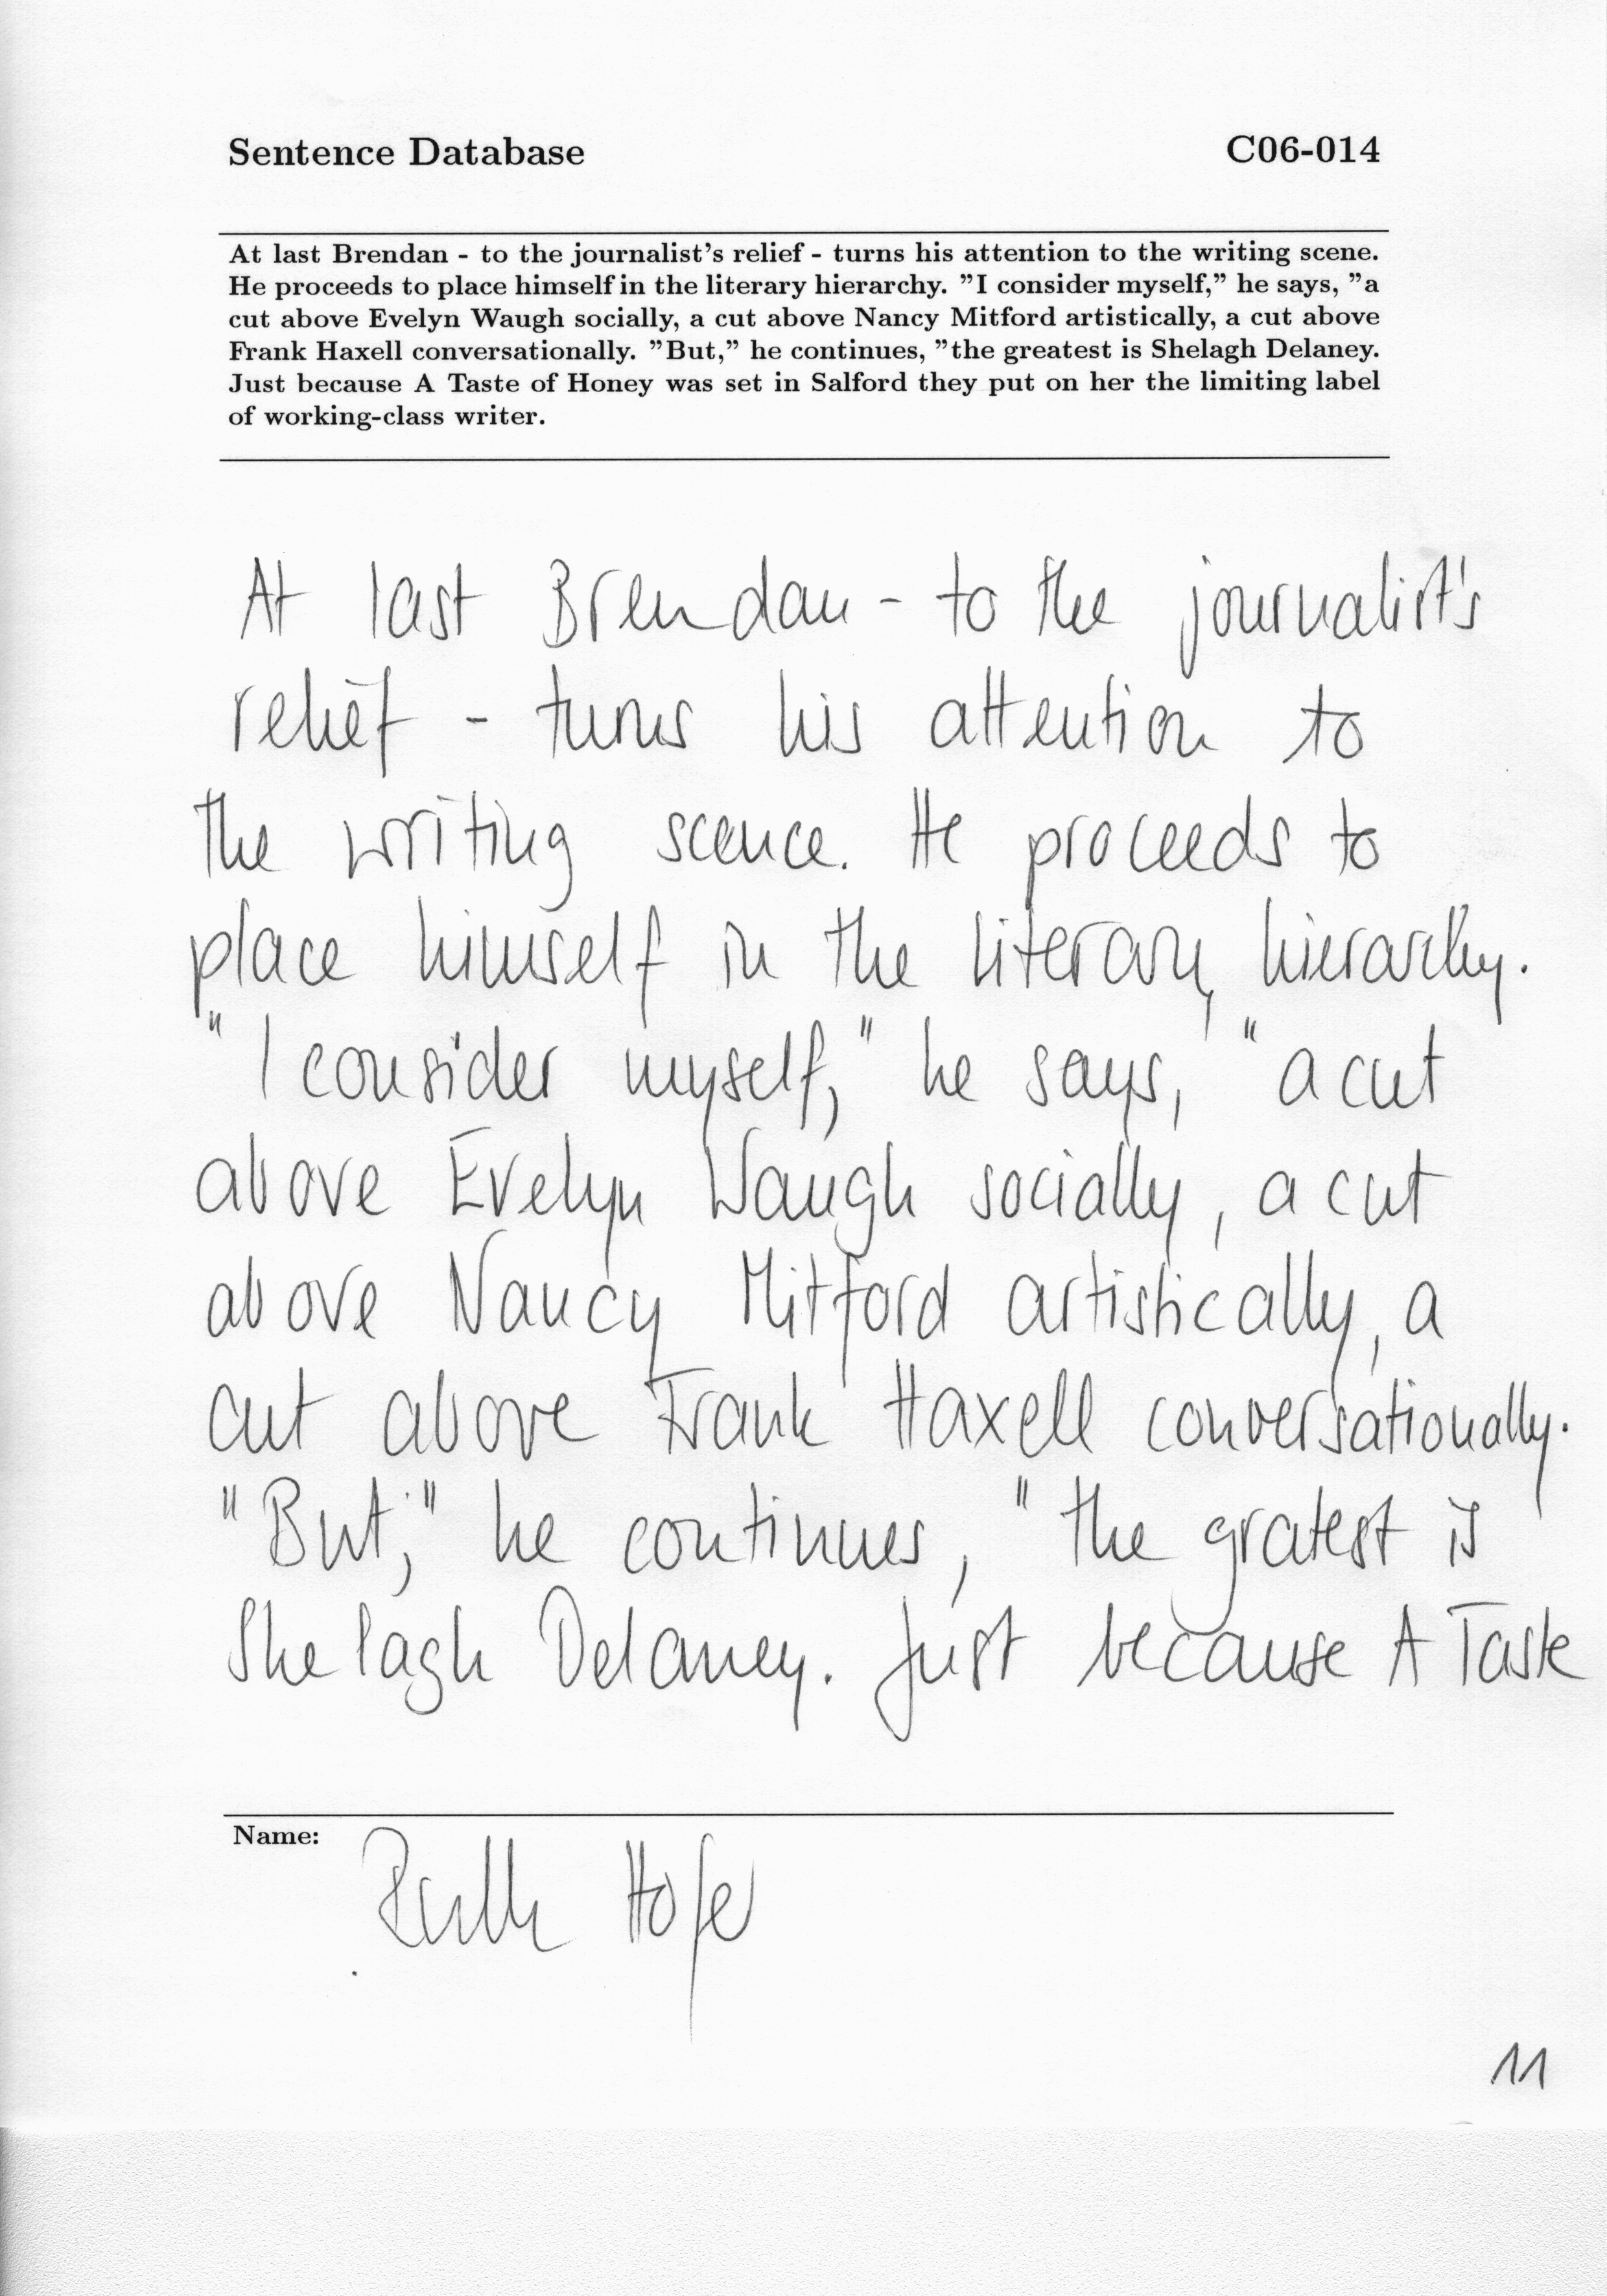 Sentence Database C06-014
At last Brendan - to the journalist's relief - turns his attention to the writing scene.
He proceeds to place himself in the literary hierarchy. ”I consider myself,” he says, ”a
cut above Evelyn Waugh socially, a cut above Nancy Mitford artistically, a cut above
Frank Haxell conversationally. ”But,” he continues, ”the greatest is Shelagh Delaney.
Just because A Taste of Honey was set in Salford they put on her the limiting label
of working-class writer.
At last Brendan - to the journalist's
relief - turns his attention to
the writing scence. He proceeds to
place himself in the literary hierarchy.
"I consider myself," he says, "a cut
above Evelyn Waugh socially, a cut
above Nancy Mitford artistically, a
cut above Frank Haxell conversationally.
"But," he continues, "the gratest is
Shelagh Delaney. Just because A Taste
Name: Ruth Hofer
11